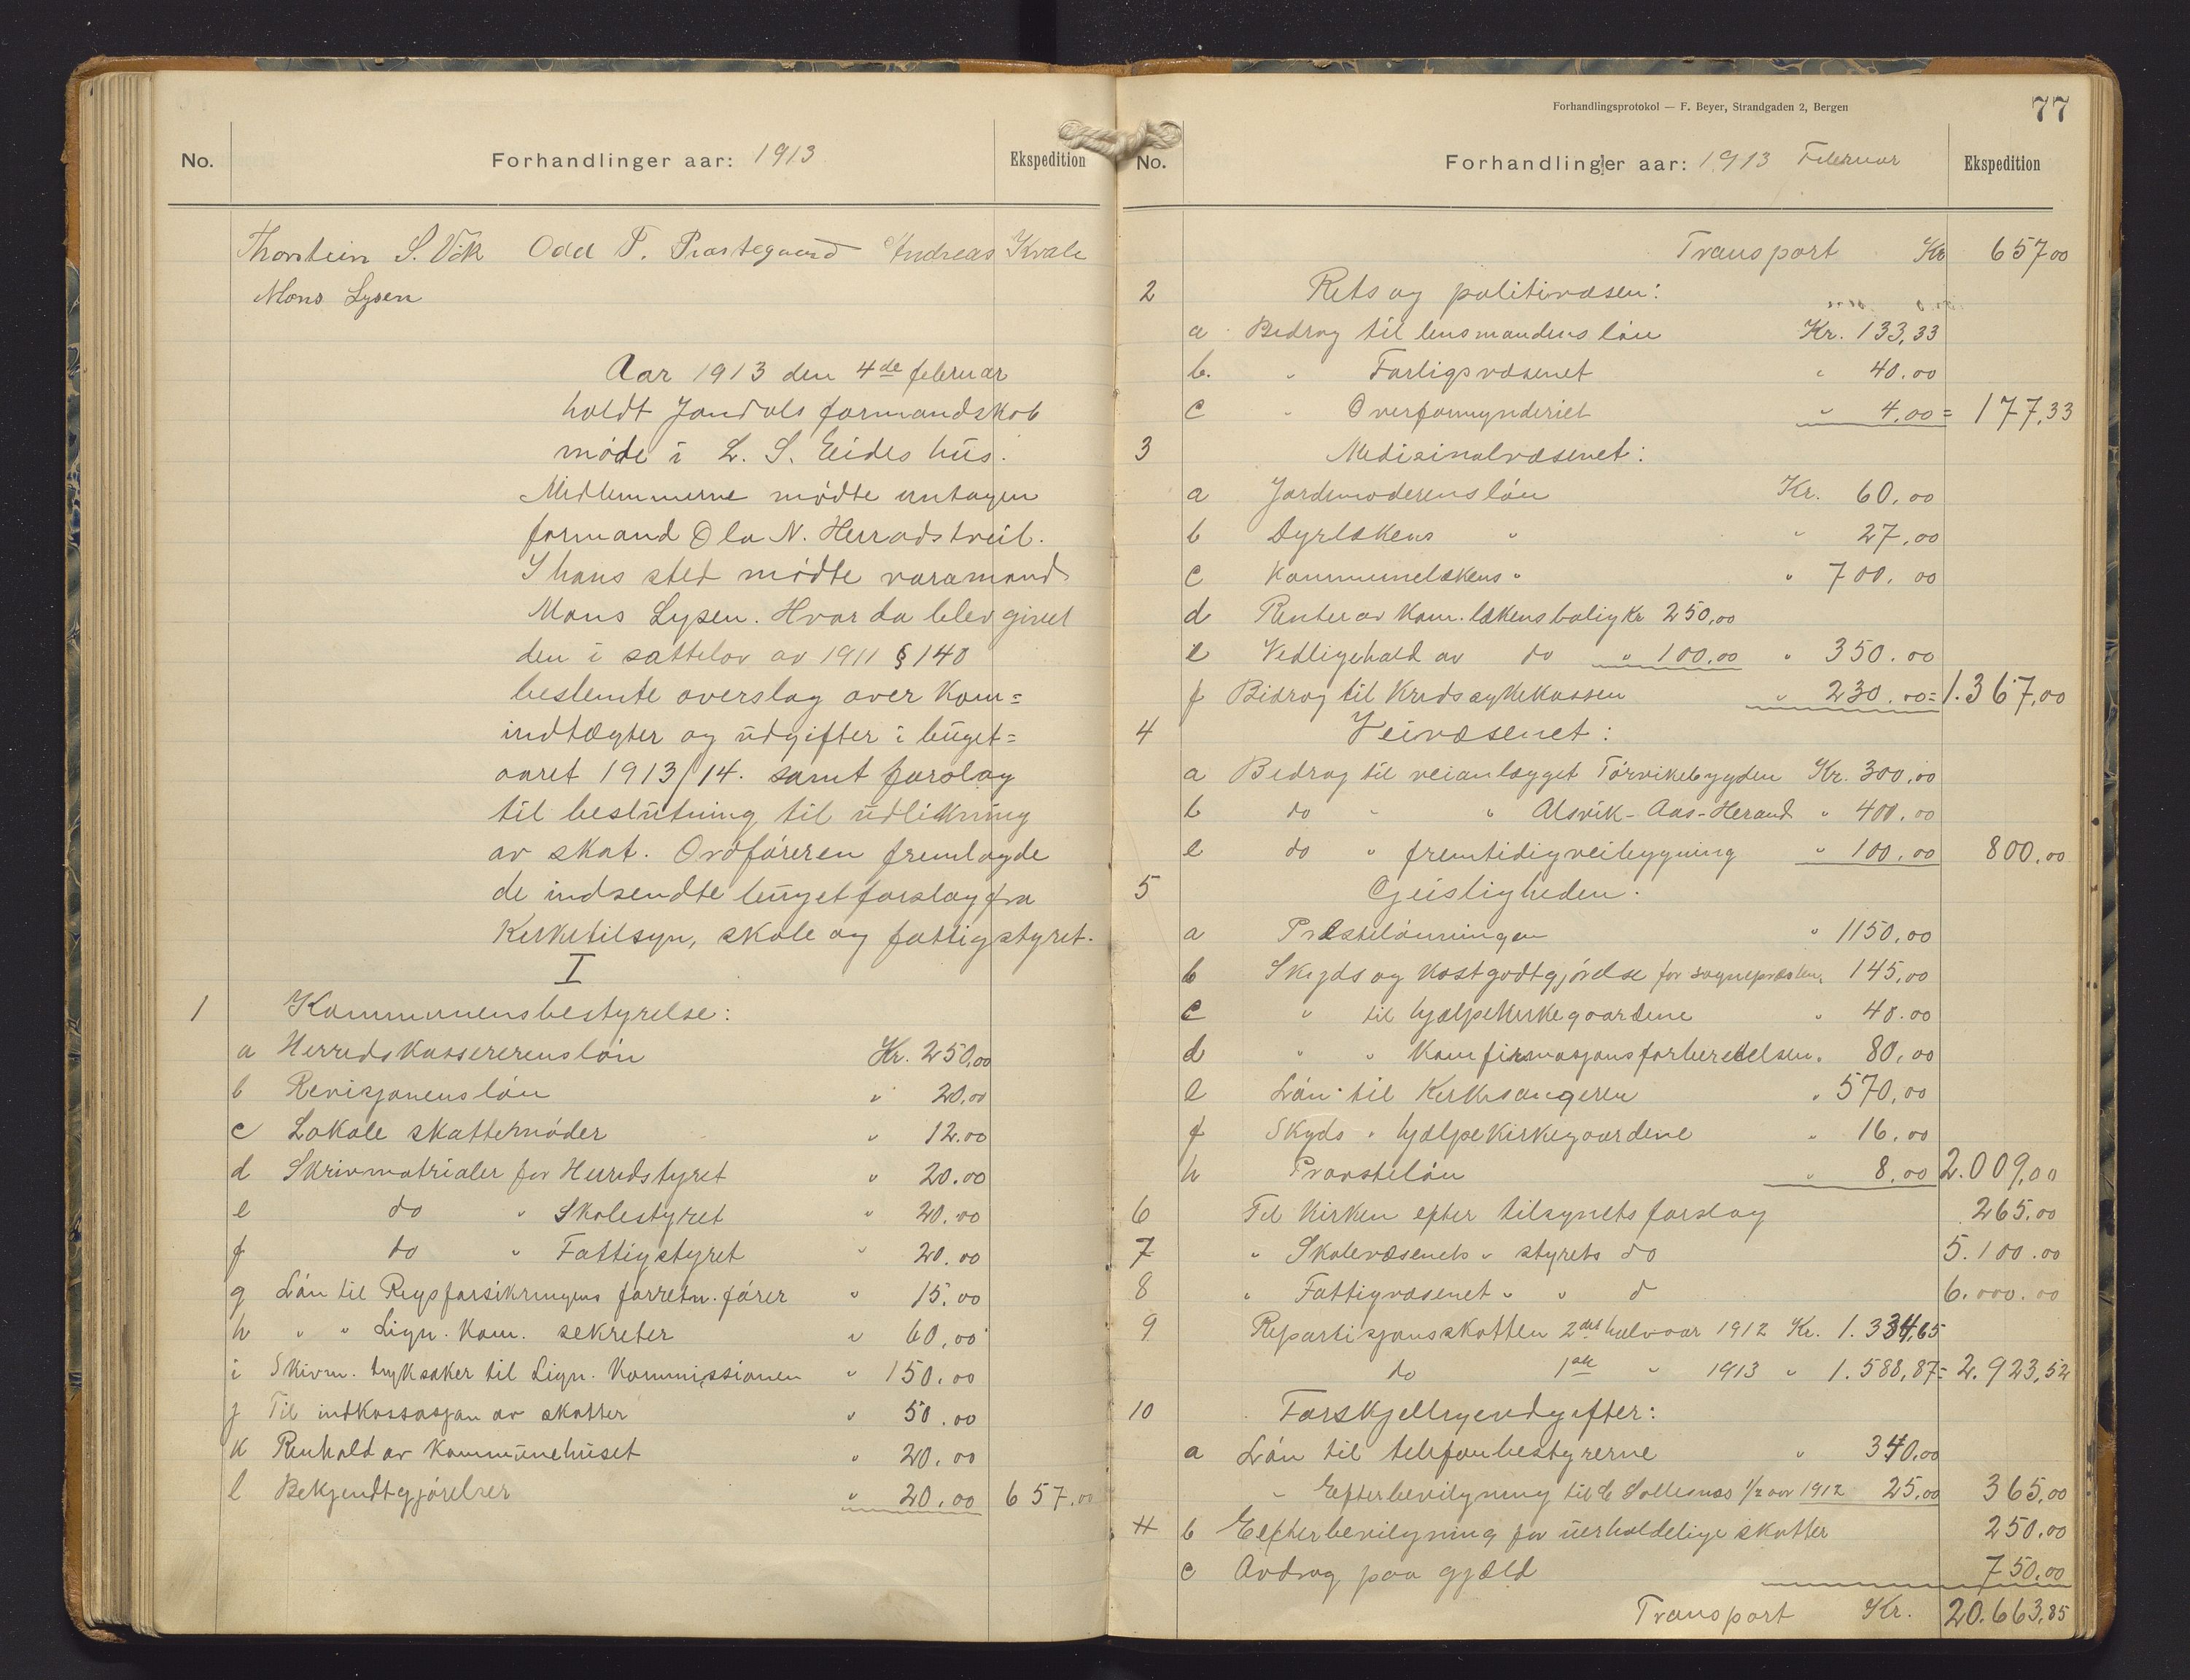 No.
Forhandlinger aar: 1913
Ekspedition
Thorstein S. Vik Odd T. Prastegaard Andreas Kvale
Mons Lysen
Aar 1913 den 4de februar
holdt Jondals formandskab
møde i L. S. Eides hus.
Medlemmerne mødte untagen
formand Ola N. Herradstveit.
I hans sted mødte varamand
Mons Lysen. Hvor da blev givet
den i sattelov av 1911 § 140
bestemte overslag over kom=
indtægter og udgifter i buget=
aaret 1913/14. samt forslag
til beslutning til udlikning
av skat. Ordføreren fremlagde
de indsendte buget forslag fra
Kirketilsyn, skole og fattigstyret.
I
1 Kommunensbestyrelse:
a Herredskassererensløn Kr. 250,00
b Revisjonensløn " 20,00
c Lokale skattemøder " 12.00
d Skrivmatrialer for Herredstyret " 20.00
e do " Skolestyret " 20.00
f do " Fattigstyret " 20.00
g Løn til Rigsforsikringens forretn. fører " 15.00
h " " Lign. kom. sekretær " 60,00
i Skivm. tryksaker til Lign. Kommissionen " 150.00
j Til indkassasjon av skatter " 50.00
k Renhold av kommunehuset " 20.00
l Bekjendtgjørelser " 20.00 657.00
Forhandlingsprotokol — F. Beyer, Strandgaden 2, Bergen
77
No.
Forhandlinger aar: 1913 Februar
Ekspedition
Transport Kr 657 00
2 Rets og politivæsen:
a Bedrag til lensmandens løn Kr. 133,33
b. " Forligsvæsenet " 40.00
c " Overformynderiet " 4.00 = 177,33
3 Medisinalvæsenet:
a Jordmoderensløn Kr. 60,00
b Dyrlækens " " 27,00
c Kommunelækens " " 700,00
d Renter av kom. lækens bolig Kr 250,00
e Vedligehold av do " 100,00 " 350.00
f Bidrag til Kredssykekassen " 230.00 = 1.367,00
4 Veivæsenet:
a Bedrag til veianlægget Tørvikebygden Kr. 300,00
b do " " Alsvik-Aas-Herand " 400.00
c do " fremtidigveibygning " 100,00 800,00
5 Geistligheden.
a Prestelønningen " 1150,00
b Skyds og kostgodtgjørelse for sognepræsten " 145,00
c " til hjælpekirkegaardene " 40.00
d " " Komfirmasjonsforberedelsen " 80,00
e Løn til Kirkesangeren " 570,00
f Skyds " hjælpekirkegaardene " 16.00
h Provsteløn " 8,00 2.009,00
6 Til Kirken efter tilsynets forslag 265.00
7 " Skolevæsenets " styrets do 5.100.00
8 " Fattigvæsenet " " d 6.000.00
9 Repartisjonsskatten 2det halvaar 1912 Kr. 1.334,65
do 1ste " 1913 " 1.588,87 = 2.923,52
10 Forskjelligeudgifter:
a Løn til telefonbestyrerne " 340,00
" Efterbevilgning til 1/2 aar 1912 25,00 365,00
11 b Eefterbevilgning for uerholdelige skatter 250.00
c Avdrag paa gjæld 750,00
Transport Kr. 20.663,85